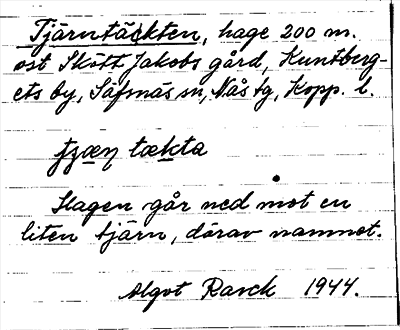 Tjärntäckten, hage 200 m.
ost Skött Jakobs gård, Kuntberg-
ets by, Säfsnäs sn, Nås tg, Kopp. l.
tæk̲ta
Hagen går ned mot en
liten tjärn, därav namnet.
Algot Rask 1944.